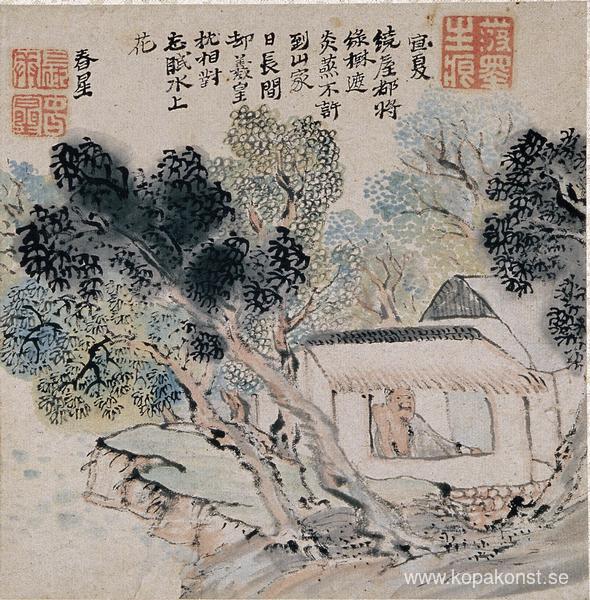 宜夏
繞屋都将
緑樹遮
炎蒸不許
到山家
日長間
却羲皇
枕相對
忘眠水上
花
春星
落墨
生痕
www.kopakonst.se